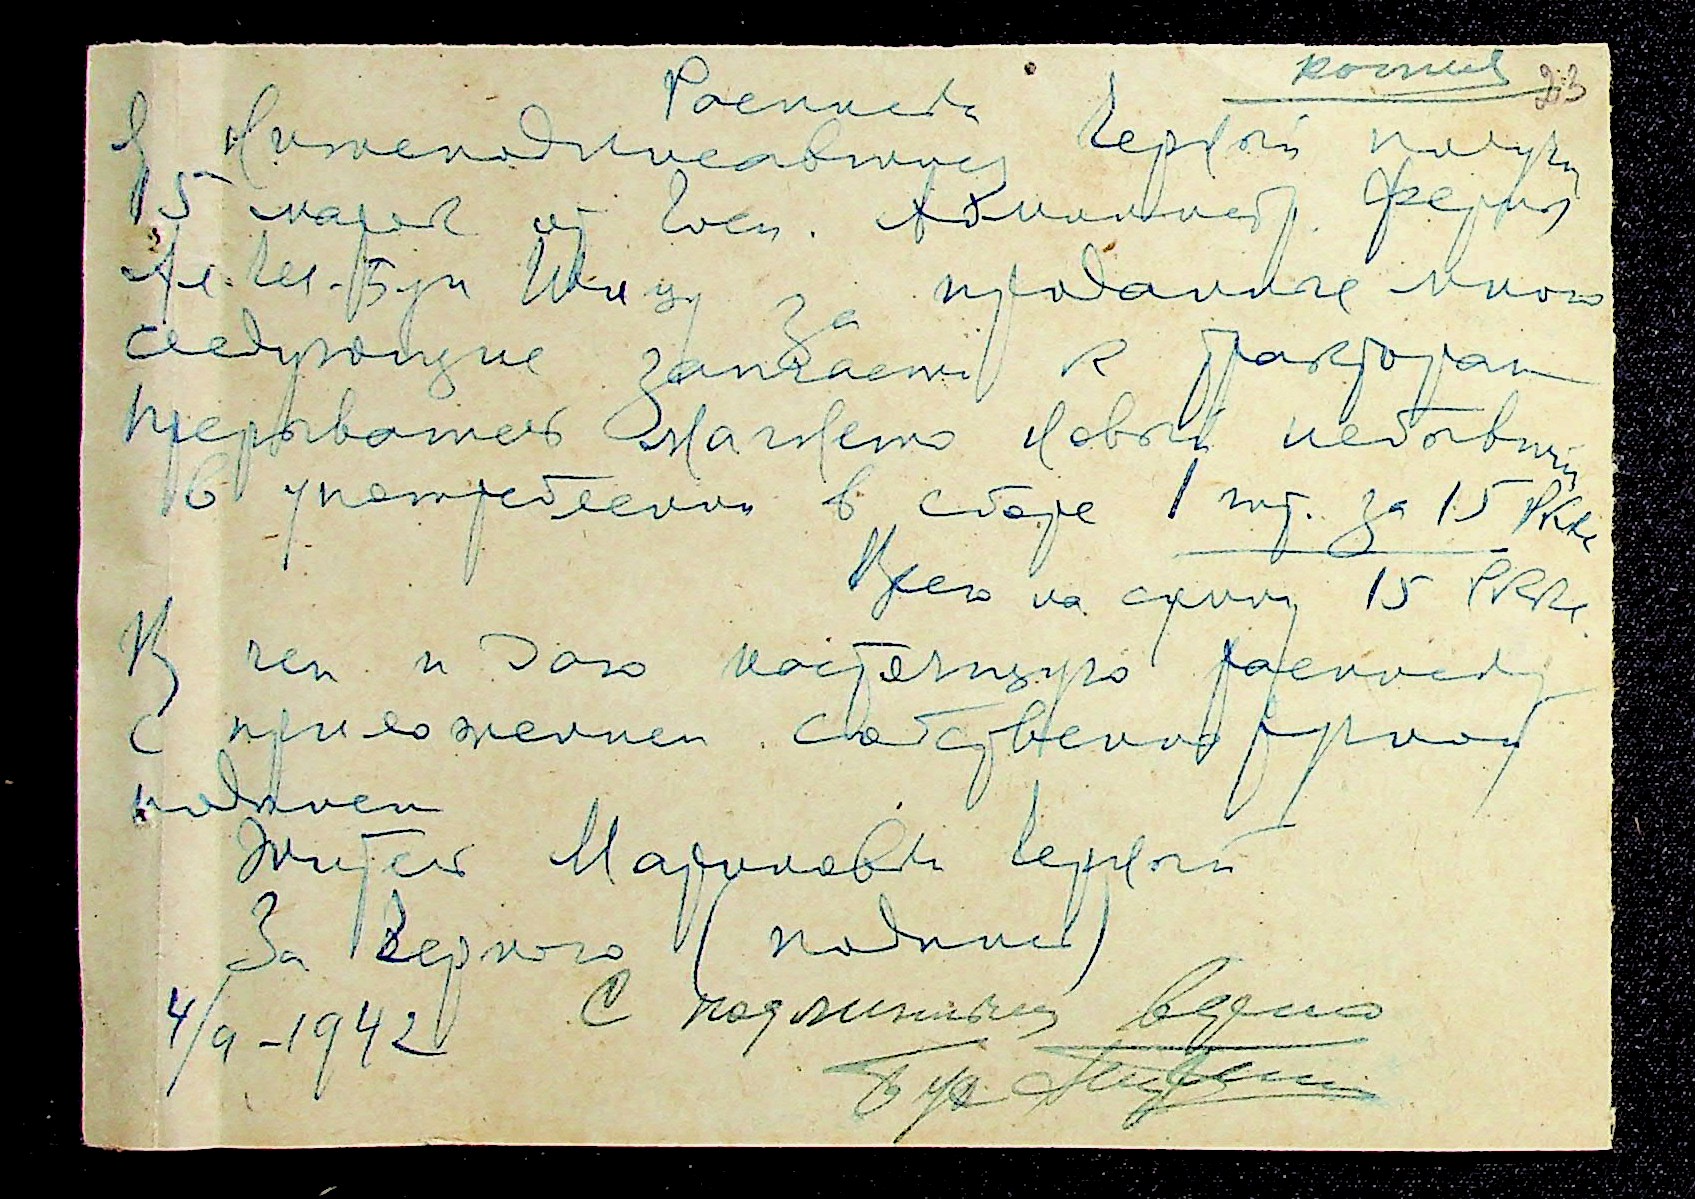 копия 23
Расписка
Я Нижеподписавшийся Черный получил
15 марок от Госп. Администр. Ферм
за проданные мною
следующие запчасти к тракторам
прерыватель Магнето Новый небывший
в употреблении в сборе 1 шт. за 15 РККа
Всего на сумму 15 РККа.
В чем и даю настоящую расписку
с приложением собственноручной
подписи
Житель Мариновки Черный
За Черного (подпись)
4/9-1942 С подлинным верно
Бух.